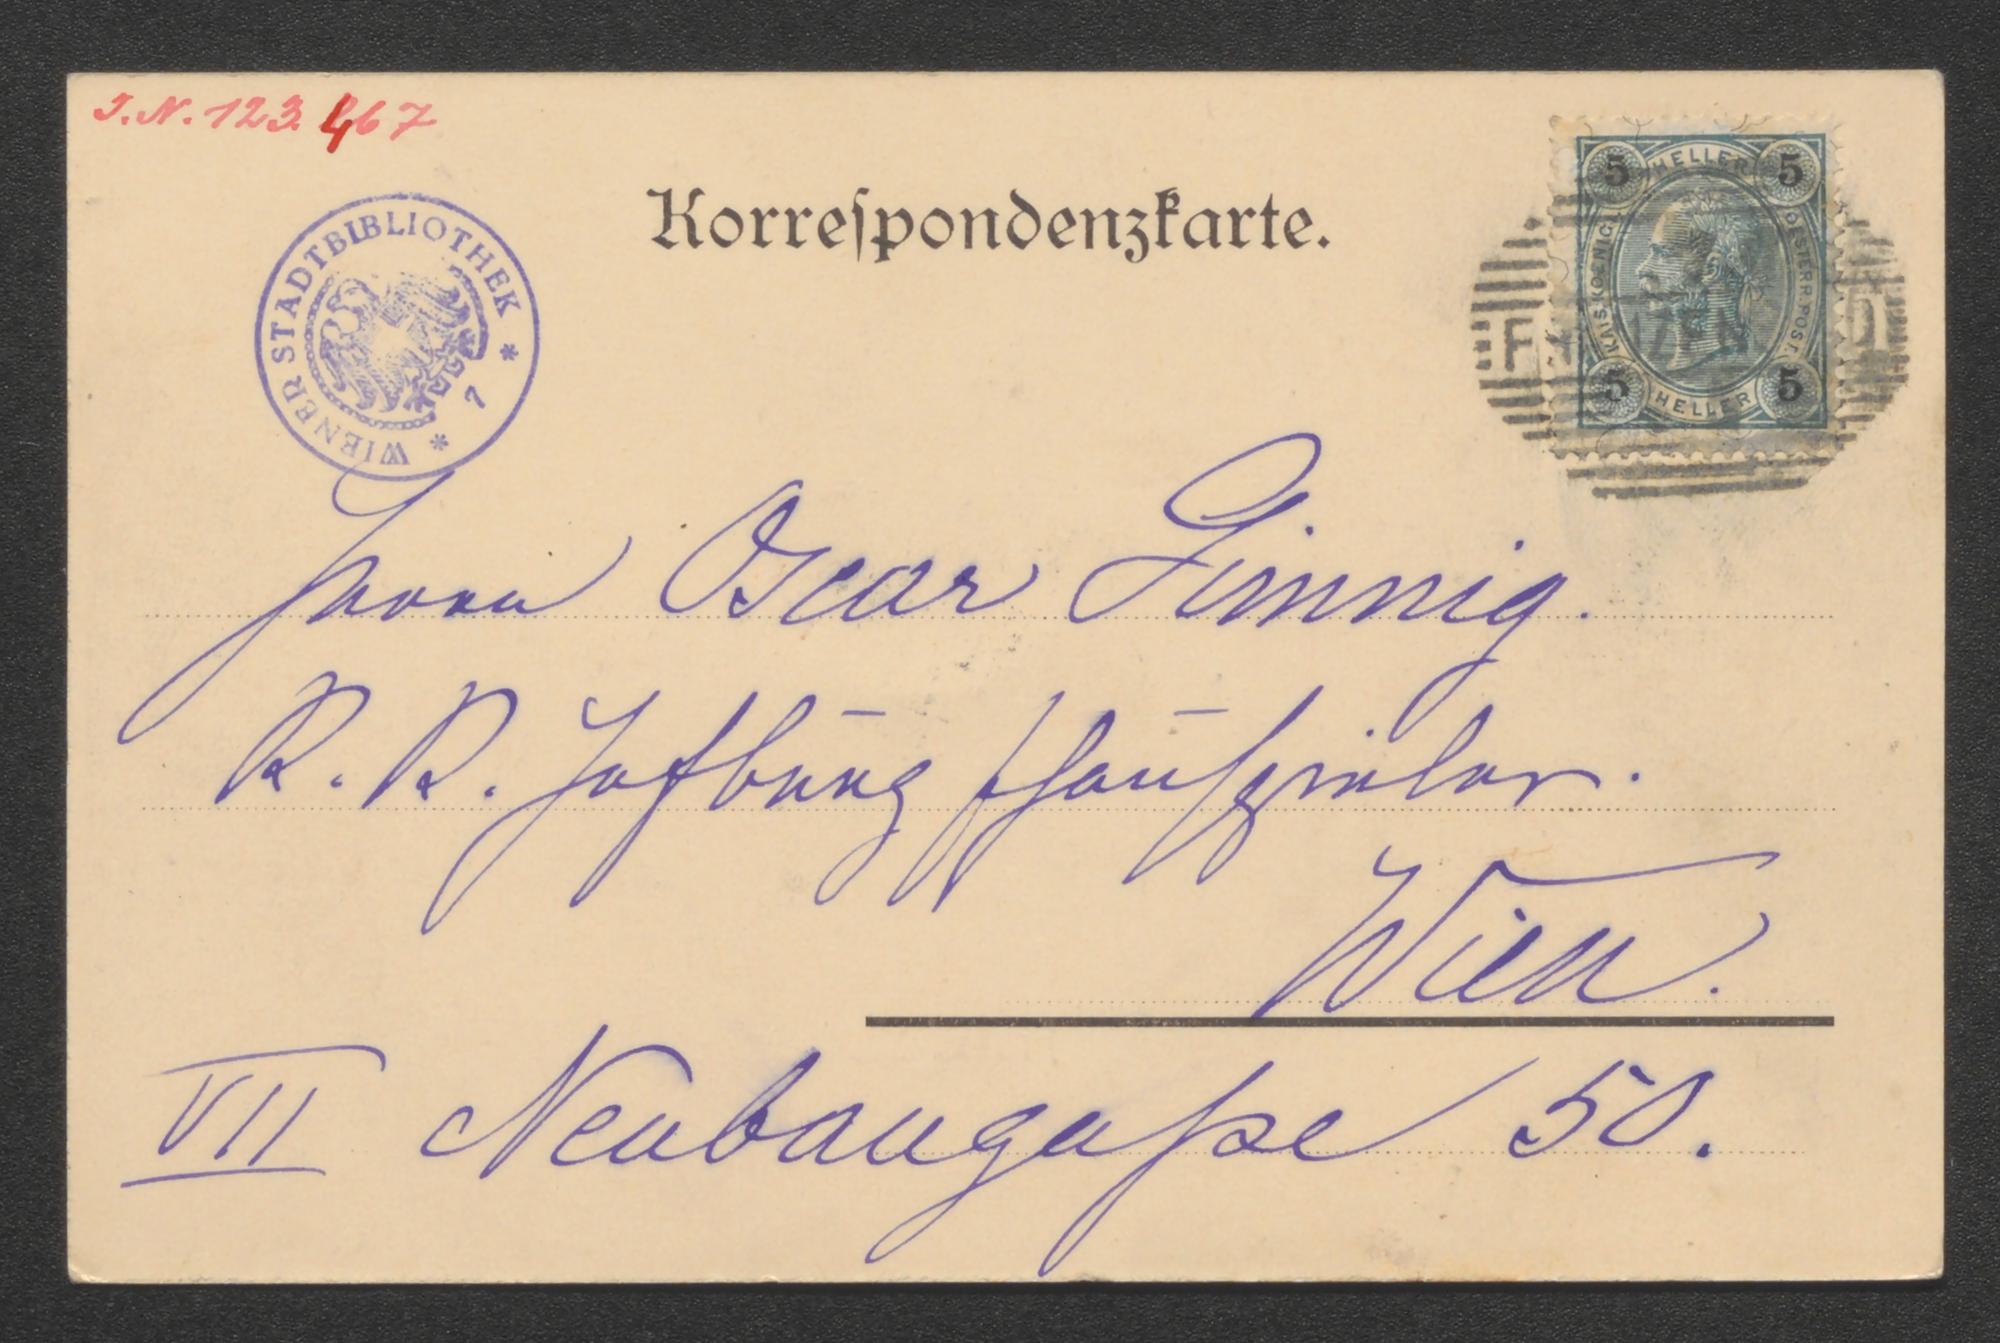 J.N. 123.467
WIENER STADTBIBLIOTHEK * 7 *
Korreſpondenzkarte.
5 HELLER 5
KAIS. KOENIGL. OESTERR. POST.
5 HELLER 5
Herrn Oscar Gimnig.
K. K. Hofburgschauspieler.
Wien.
VII Neubaugaße 50.